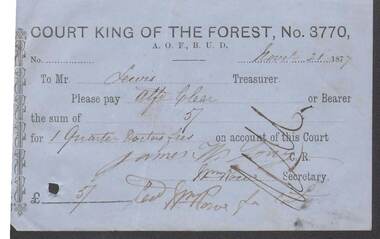 COURT KING OF THE FOREST, No. 3770,
A. O. F., B. U. D.
No. Novr 21 1877
To Mr Lewis Treasurer.
Please pay or Bearer
the sum of 57
for 1 Quarter Doctors fees on account of this Court
James C. R.
Secretary.
£ 57